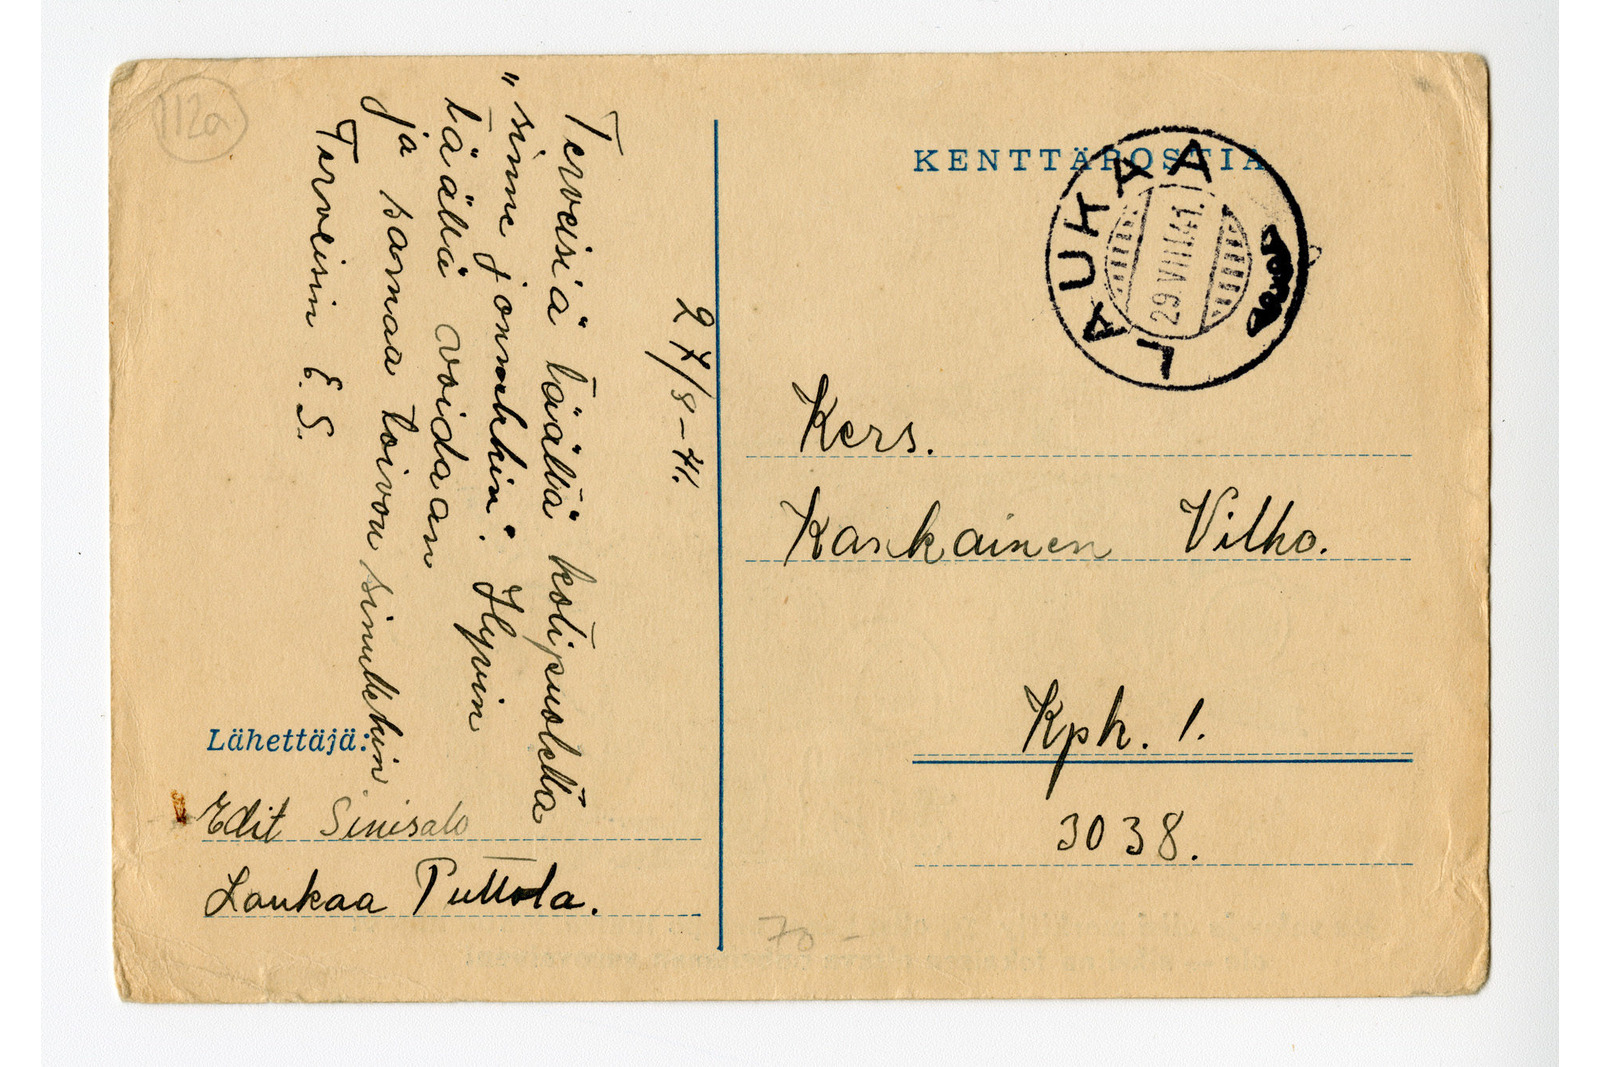 112a
27/8-41.
Terveisiä täältä kotipuolelta
"sinne jonnekkin". Hyvin
täällä voidaan
ja samaa toivon sinullekin.
Terveisin E. S.
Lähettäjä:
Edit Sinisalo
Laukaa Puttola.
KENTTÄPOSTIA
LAUKAA
29.VIII.41.
Kers.
Kankainen Vilho.
Kpk. 1.
3038.
70 -